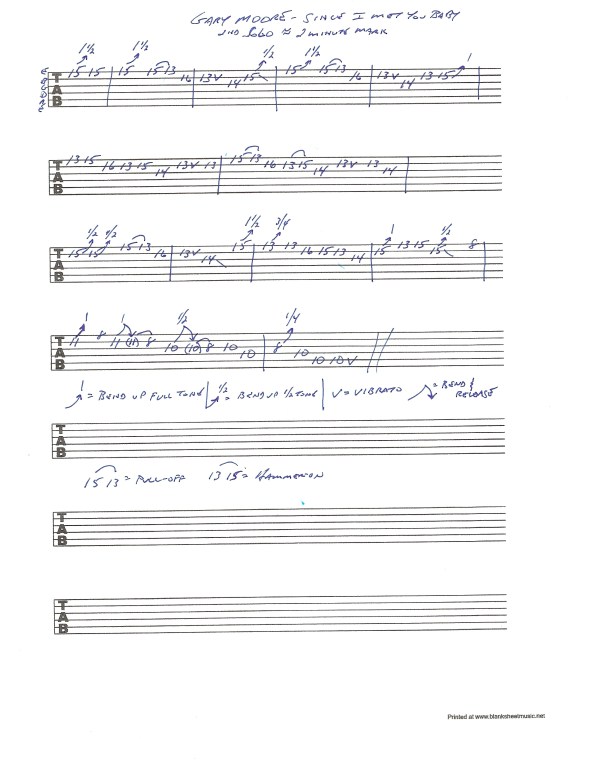 GARY MOORE - SINCE I MET YOU BABY
2ND SOLO ≈ 2 MINUTE MARK
1½ 1½ ½ 1½ 1
TAB 15 15 15 15 13 16 13V 14 15 15 15 13 16 13V 14 13 15
TAB 13 15 16 13 15 14 13V 13 15 13 16 13 15 14 13V 13 14
½ ½ 1½ 3/4 1 ½
TAB 15 15 15 13 16 13V 14 15 13 13 16 15 13 14 15 13 15 15 8
1 1 ½ 1/4
TAB 11 8 11 (11) 8 10 (10) 8 10 10 8 10 10 10V
1 = BEND UP FULL TONE ½ = BEND UP ½ TONE V = VIBRATO = BEND & RELEASE
TAB
15 13 = PULL-OFF 13 15 = HAMMERON
TAB
TAB
Printed at www.blanksheetmusic.net